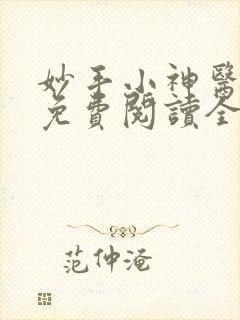 妙手小神醫
免費閱讀全
范仲淹